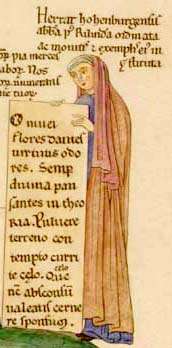 Herrat hohenburgensis
abba p Rilinda ordinata
ac monitis & exempl ei in
stituta
pia merces
labor. Nos
O nivei
flores dantes
virtutus odo
res. Semp
divina pau
santes in theo
ria. Pulvere
terreno con
tempto curri
te celo. Que
celo
nc absconsū
valeatis cerne
re sponsum.